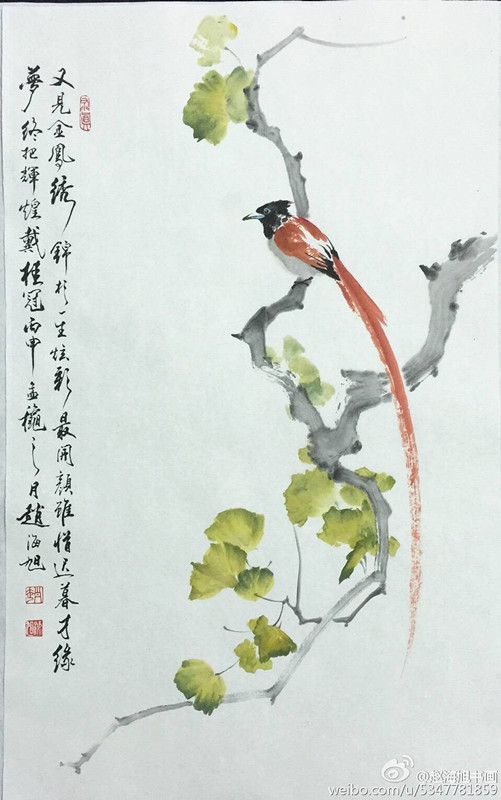 又見金鳳綉錦衫一生炫彩最開顏雖惜迟暮才緣
夢終把輝煌戴桂冠丙申孟穐之月趙海旭
@赵海旭书画
weibo.com/u/5347781859